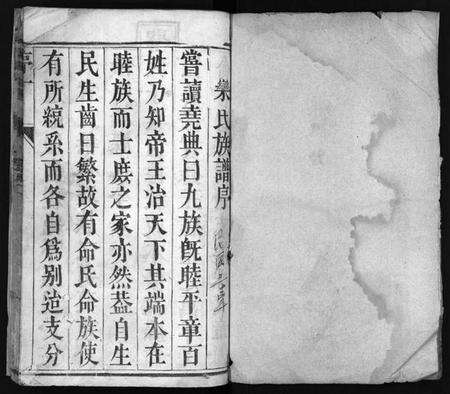 氏族譜序
嘗讀堯典曰九族既睦平章百
姓乃知帝王治天下其端本在
睦族而士庶之家亦然葢自生
民生齒日繁故有命氏命族使
有所統系而各自爲别迨支分